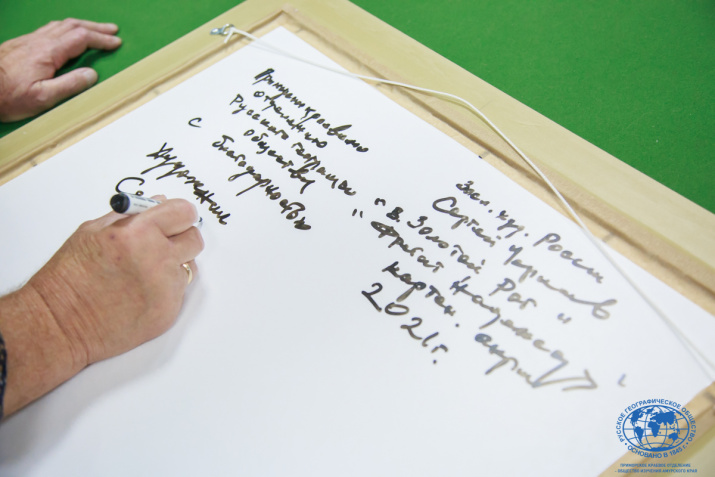 Приморскому краевому
отделению
Русского географ.
общества
с благодарностью
художник
Се
Засл. худ. России
Сергей Черкасов
"В. Золотой Рог"
"Фрегат Надежда"
картон. акрил
2021г.
РУССКОЕ ГЕОГРАФИЧЕСКОЕ ОБЩЕСТВО
ОСНОВАНО В 1845 г.
ПРИМОРСКОЕ КРАЕВОЕ ОТДЕЛЕНИЕ
- ОБЩЕСТВО ИЗУЧЕНИЯ АМУРСКОГО КРАЯ